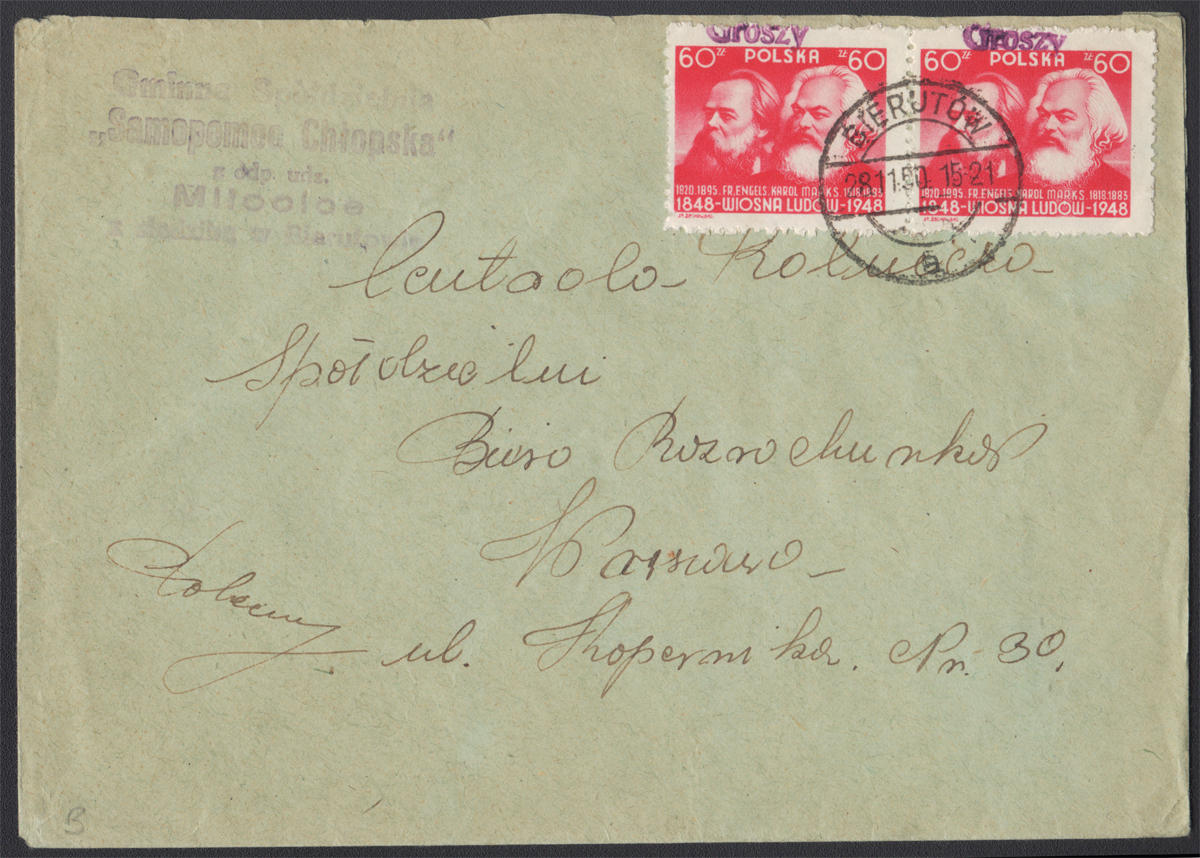 Gminna Spółdzielnia
„Samopomoc Chłopska"
z odp. udz.
Miłocice
z siedzibą w Bierutowie
Groszy Groszy
60 ZŁ POLSKA ZŁ 60
60 ZŁ POLSKA ZŁ 60
1820.1895. FR. ENGELS. KAROL MARKS. 1818.1883
1848-WIOSNA LUDÓW-1948
1820.1895. FR. ENGELS. KAROL MARKS. 1818.1883
1848-WIOSNA LUDÓW-1948
BIERUTÓW
28.11.50. 15-21
a
Centrala Rolnicza
Spółdzielni
Biuro Rozrachunków
Warszawa
ul. Kopernika. Nr. 30.
B